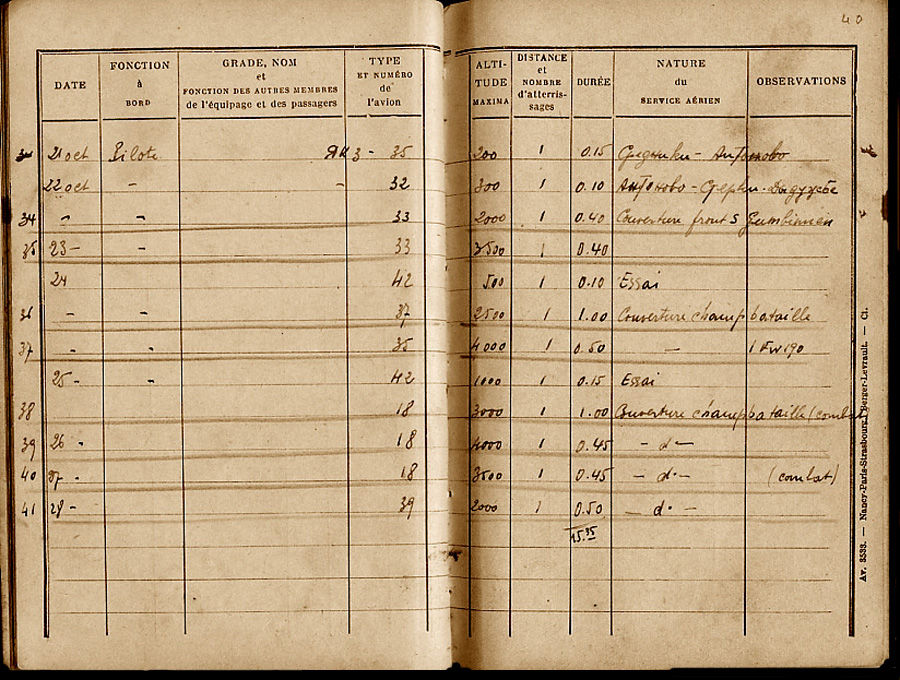 40
DATE
FONCTION
à
BORD
GRADE, NOM
et
FONCTION DES AUTRES MEMBRES
de l'équipage et des passagers
TYPE
ET NUMÉRO
de
l'avion
ALTI-
TUDE
MAXIMA
DISTANCE
et
NOMBRE
d'atterris-
sages
DURÉE
NATURE
du
SERVICE AÉRIEN
OBSERVATIONS
21 oct Pilote ЯК 3 - 35 200 1 0.15 - Антоново
22 oct - - 32 300 1 0.10 Антоново -
34 - - 33 2000 1 0.40 Couverture front Gumbinnen
35 23 - - 33 3500 1 0.40
24 42 500 1 0.10 Essai
36 - - 37 2500 1 1.00 Couverture champ bataille
37 - - 35 4000 1 0.50 - 1 Fw 190
25 - - 42 1000 1 0.15 Essai
38 18 3000 1 1.00 Couverture champ bataille (combat)
39 26 - 18 4000 1 0.45 - d° -
40 27 - 18 3500 1 0.45 - d° - (combat)
41 28 - 39 2000 1 0.50 - d° -
15.35
Av. 3533. — Nancy-Paris-Strasbourg, Berger-Levrault. — Ci.